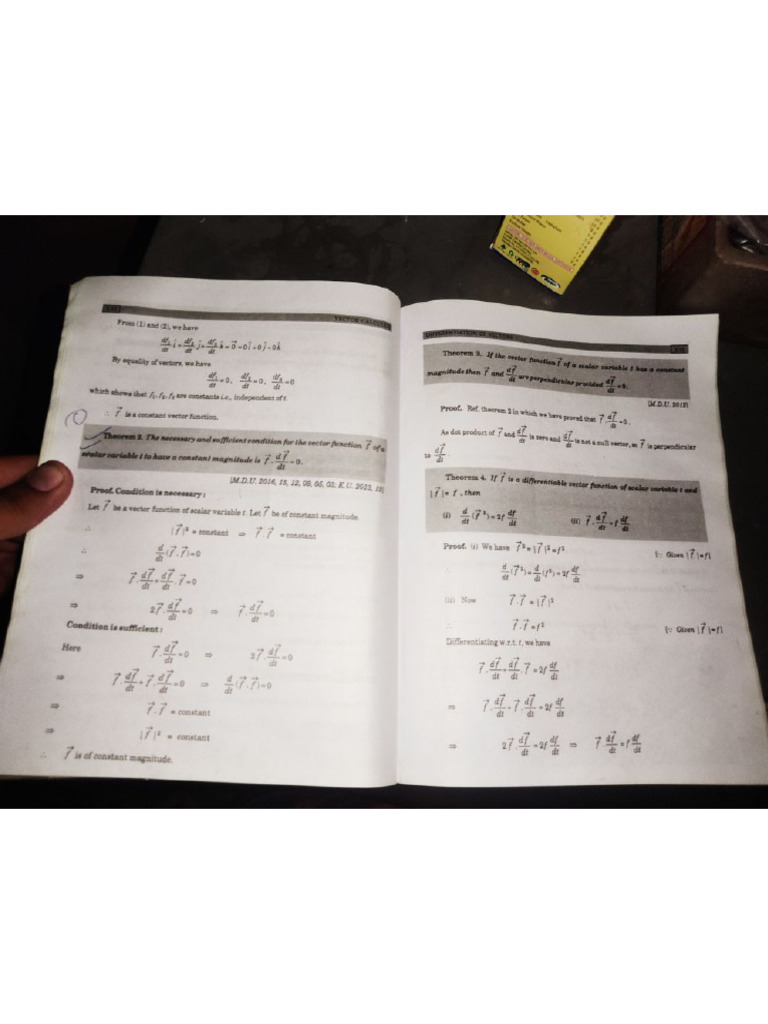 VECTOR CALCULUS
From (1) and (2), we have
df₁/dt î + df₂/dt ĵ + df₃/dt k̂ = 0⃗ = 0î + 0ĵ + 0k̂
By equality of vectors, we have
df₁/dt = 0, df₂/dt = 0, df₃/dt = 0
which shows that f₁, f₂, f₃ are constants i.e., independent of t.
∴ f⃗ is a constant vector function.
Theorem 2. The necessary and sufficient condition for the vector function f⃗ of a
scalar variable t to have a constant magnitude is f⃗ . df⃗/dt = 0.
[M.D.U. 2016, 15, 12, 08, 05, 03; K.U. 2022,
Proof. Condition is necessary :
Let f⃗ be a vector function of scalar variable t. Let f⃗ be of constant magnitude.
∴ |f⃗|² = constant ⇒ f⃗ . f⃗ = constant
∴ d/dt (f⃗ . f⃗) = 0
⇒ f⃗ . df⃗/dt + df⃗/dt . f⃗ = 0
⇒ 2f⃗ . df⃗/dt = 0 ⇒ f⃗ . df⃗/dt = 0
Condition is sufficient :
Here f⃗ . df⃗/dt = 0 ⇒ 2f⃗ . df⃗/dt = 0
⇒ f⃗ . df⃗/dt + f⃗ . df⃗/dt = 0 ⇒ d/dt (f⃗ . f⃗) = 0
⇒ f⃗ . f⃗ = constant
⇒ |f⃗|² = constant
∴ f⃗ is of constant magnitude.
DIFFERENTIATION OF VECTORS
Theorem 3. If the vector function f⃗ of a scalar variable t has a constant
magnitude then f⃗ and df⃗/dt are perpendicular provided df⃗/dt
[M.D.U. 2012]
Proof. Ref. theorem 2 in which we have proved that f⃗ . df⃗/dt = 0.
As dot product of f⃗ and df⃗/dt is zero and df⃗/dt is not a null vector, so f⃗ is perpendicular
to df⃗/dt.
Theorem 4. If f⃗ is a differentiable vector function of scalar variable t and
|f⃗| = f, then
(i) d/dt (f⃗²) = 2f df/dt (ii) f⃗ . df⃗/dt = f df/dt
Proof. (i) We have f⃗² = |f⃗|² = f² [∵ Given |f⃗| = f]
∴ d/dt (f⃗²) = d/dt (f²) = 2f df/dt
(ii) Now f⃗ . f⃗ = |f⃗|²
∴ f⃗ . f⃗ = f² [∵ Given |f⃗| = f]
Differentiating w.r.t. t, we have
f⃗ . df⃗/dt + df⃗/dt . f⃗ = 2f df/dt
⇒ f⃗ . df⃗/dt + f⃗ . df⃗/dt = 2f df/dt
⇒ 2f⃗ . df⃗/dt = 2f df/dt ⇒ f⃗ . df⃗/dt = f df/dt